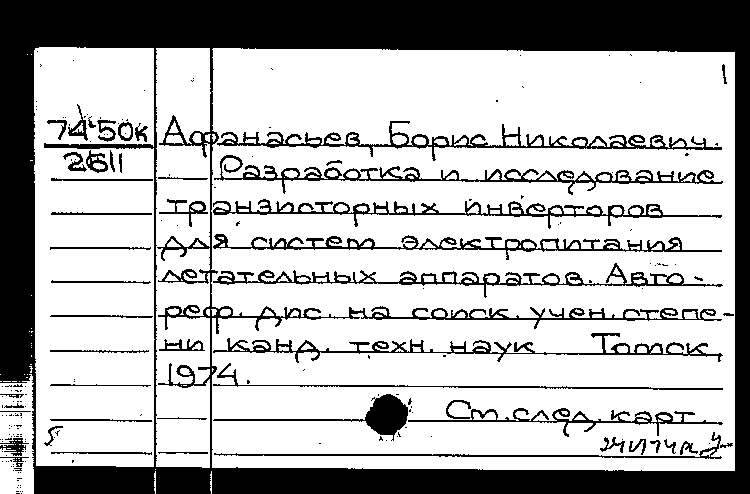 1
74-50к
2611
Афанасьев, Борис Николаевич.
Разработка и исследование
транзисторных инверторов
для систем электропитания
летательных аппаратов. Авто-
реф. дис. на соиск. учен. степе-
ни канд. техн. наук Томск,
1974.
Ст. след. карт.